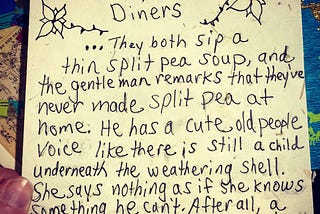 Diners
... They both sip a
thin split pea soup, and
the gentleman remarks that they've
never made split pea at
home. He has a cute old people
voice like there is still a child
underneath the weathering shell.
She says nothing as if she knows
something he can't. After all, a